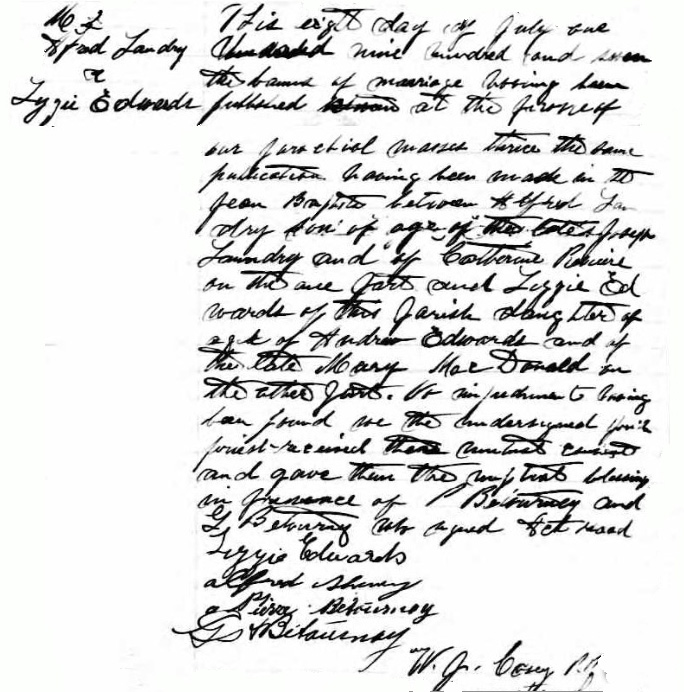 M
Alfred Landry
&
Lizzie Edwards
This eight day of July one
hundred nine hundred and seven
the banns of marriage having been
published at the prone of
our parochial masses thrice the same
publication having been made in St
Jean Baptiste between Alfred Lan
dry son of age of the late Joseph
Laundry and of Catherine
on the one part and Lizzie Ed
wards of this parish daughter of
age of Andrew Edwards and of
the late Mary Mac Donald on
the other part. No impediments having
been found we the undersigned parish
priest received there mutual consent
and gave them the nuptial blessing
in presence of P Betourney and
G. Betourny who signed Act read
Lizzie Edwards
Alfred
Pierre Betournay
G Betournay
W. J.